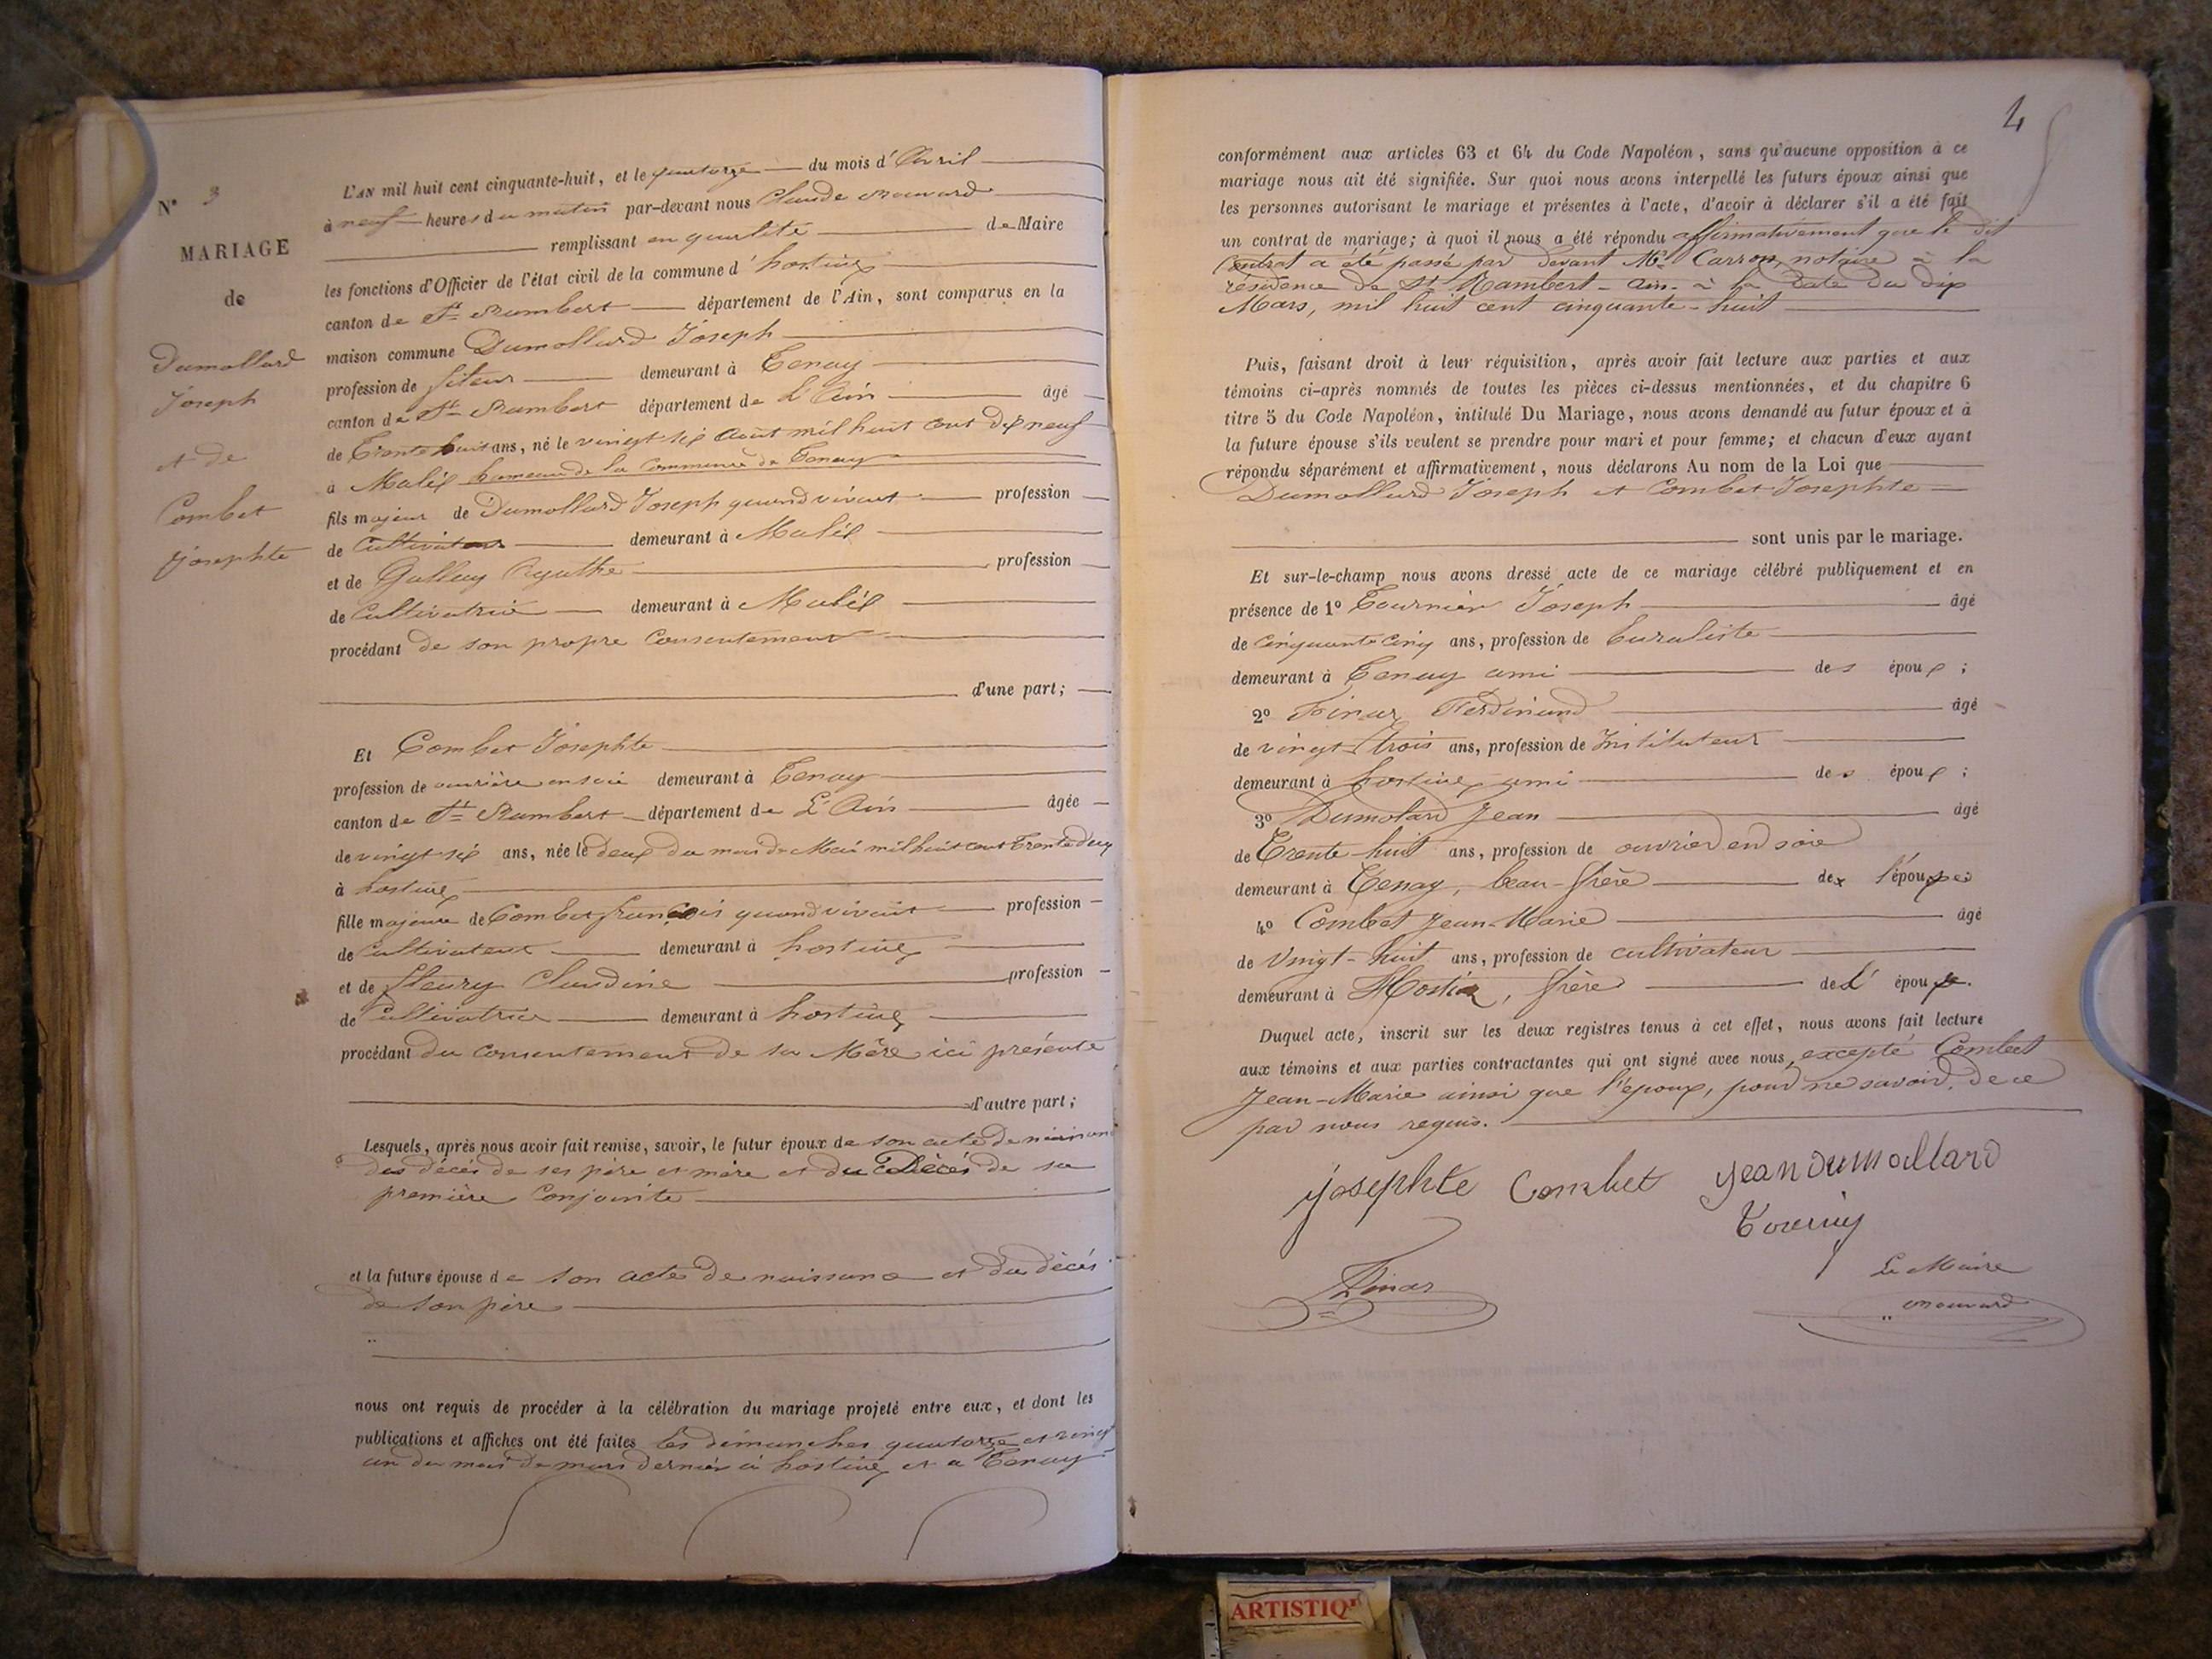 N° 3
MARIAGE
de
Dumollard
Joseph
et de
Combet
Josephte
L'AN mil huit cent cinquante-huit, et le quatorze du mois d'Avril
à neuf heures du matin par-devant nous Claude
remplissant en qualité de Maire
les fonctions d'Officier de l'état civil de la commune d'hostiaz
canton de St Rambert département de l'Ain, sont comparus en la
maison commune Dumollard Joseph
profession de fileur demeurant à Tenay
canton de St Rambert département de L'Ain âgé
de Trente huit ans, né le vingt six Août mil huit cent dix neuf
à Malix hameau de la Commune de Tenay
fils majeur de Dumollard Joseph quand vivait profession
de Cultivateur demeurant à Malix
et de Gallay Agathe profession
de Cultivatrice demeurant à Malix
procédant de son propre Consentement
d'une part;
Et Combet Josephte
profession de ouvrière en soie demeurant à Tenay
canton de St Rambert département de L'Ain âgée
de vingt six ans, née le deux du mois de Mai mil huit cent Trente deux
à hostiaz
fille majeure de Combet françois quand vivait profession
de Cultivateur demeurant à hostiaz
et de fleury Claudine profession
de Cultivatrice demeurant à hostiaz
procédant du consentement de sa Mère ici présente
d'autre part;
Lesquels, après nous avoir fait remise, savoir, le futur époux de son acte de naissance
des décès de ses père et mère et du Décès de sa
première Conjointe
et la future épouse de son acte de naissance et du décès
de son père
nous ont requis de procéder à la célébration du mariage projeté entre eux, et dont les
publications et affiches ont été faites les dimanches quatorze et vingt
un du mois de mars dernier à hostiaz et a Tenay
4
conformément aux articles 63 et 64 du Code Napoléon, sans qu'aucune opposition à ce
mariage nous ait été signifiée. Sur quoi nous avons interpellé les futurs époux ainsi que
les personnes autorisant le mariage et présentes à l'acte, d'avoir à déclarer s'il a été fait
un contrat de mariage; à quoi il nous a été répondu affirmativement que le dit
Contrat a été passé par devant Me Carron, notaire à la
résidence de St Rambert - Ain - à la Date du dix
Mars, mil huit cent cinquante-huit
Puis, faisant droit à leur réquisition, après avoir fait lecture aux parties et aux
témoins ci-après nommés de toutes les pièces ci-dessus mentionnées, et du chapitre 6
titre 5 du Code Napoléon, intitulé Du Mariage, nous avons demandé au futur époux et à
la future épouse s'ils veulent se prendre pour mari et pour femme; et chacun d'eux ayant
répondu séparément et affirmativement, nous déclarons Au nom de la Loi que
Dumollard Joseph et Combet Josephte
sont unis par le mariage.
Et sur-le-champ nous avons dressé acte de ce mariage célébré publiquement et en
présence de 1° Tournier Joseph âgé
de cinquante cinq ans, profession de buraliste
demeurant à Tenay ami des époux;
2° Ferdinand âgé
de vingt trois ans, profession de Instituteur
demeurant à hostiaz ami des époux;
3° Dumolard Jean âgé
de Trente-huit ans, profession de ouvrier en soie
demeurant à Tenay, beau-frère de l'épouse
4° Combet Jean-Marie âgé
de Vingt-huit ans, profession de cultivateur
demeurant à Hostiaz, frère de L'épouse.
Duquel acte, inscrit sur les deux registres tenus à cet effet, nous avons fait lecture
aux témoins et aux parties contractantes qui ont signé avec nous, excepté Combet
Jean-Marie ainsi que l'époux, pour ne savoir, de ce
par nous requis.
josephte Combet jean Dumollard
Le Maire
ARTISTIQ